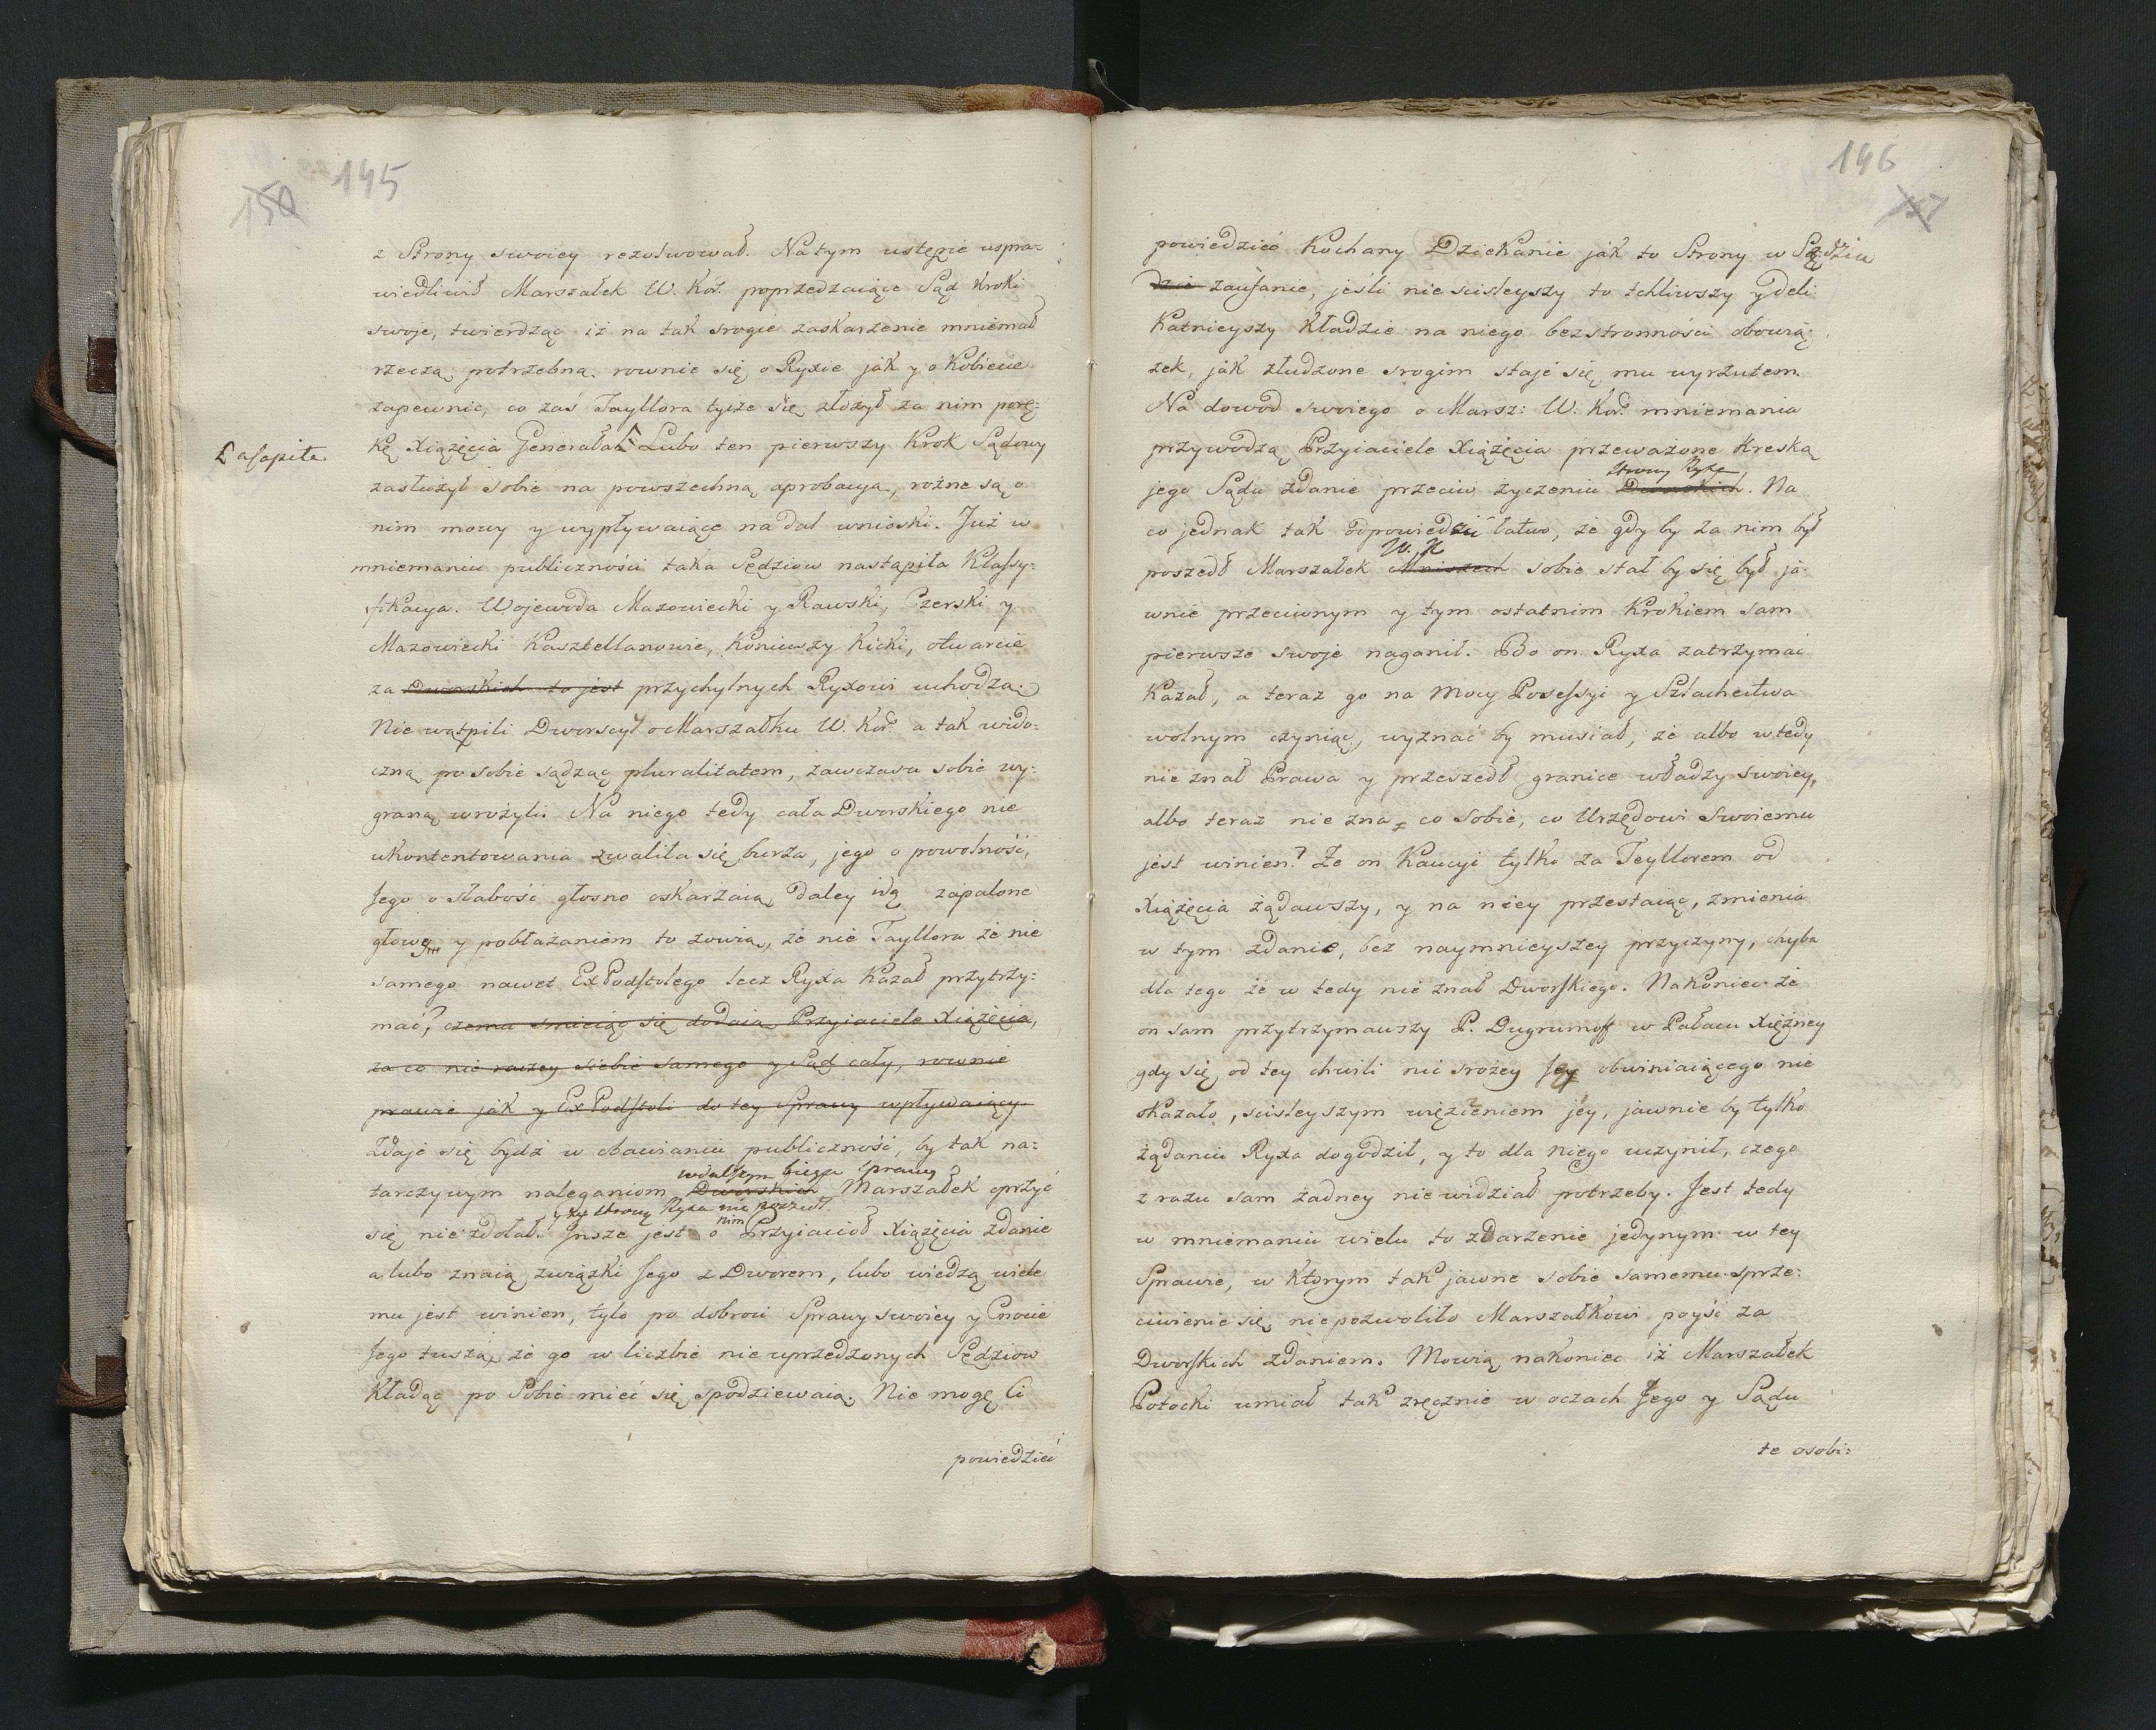 145
150
z Strony swoiey rezolwował. Natym ustępie uspra-
wiedliwił Marszałek W. Kor. poprzedzaiące Sąd kroki
swoje, twierdząc iż na tak srogie zaskarzenie mniemał
rzeczą potrzebną rownie się o Ryxie jak y o Kobiecie
zapewnic, co zaś Tayllora tycze się złożył za nim porę-
kę Xiążęcia Generała Lubo ten pierwszy krok Sądowy
a capite
zasłużył sobie na powszechną aprobacya, rożne są o
nim mowy y wypływaiące na dal wnioski. Już w
mniemaniu publiczności taka Sędziow nastąpiła Klassy-
fikacya. Wojewoda Mazowiecki y Rawski, Czerski y
Mazowiecki Kasztellanowie, Koniuszy Kicki, otwarcie
za Dworskich to jest przychylnych Ryxowi uchodzą.
Nie wątpili Dworscy o Marszałku W. Kor. a tak wido-
czną po sobie sądząc pluralitatem, zawczasu sobie wy-
graną wrożyli. Na niego tedy cała Dworskiego nie
ukontentowania zwaliła się burza, jego o powolność,
Jego o słabość głosno oskarzaią, daley idą zapalone
głowy y pobłażaniem to zowią, że nie Tayllora że nie
samego nawet ExPodstolego lecz Ryxa kazał przytrzy-
mać, czemu smieiąc się dodaią Przyjaciele Xiążęcia,
za co nie raczey siebie samego y Sąd cały, rownie
prawie jak y ExPodstoli do tey Sprawy wpływaiący
Zdaje się bydź w obawianiu publiczność, by tak na-
w dalszym biegu sprawy
tarczywym naleganiom Dworskich Marszałek oprzyć
y za stroną Ryxa nie poszedł.
się nie zdołał. Insze jest o nim Przyiacioł Xiążęcia zdanie
a lubo znaią związki Jego z Dworem, lubo wiedzą wiele
mu jest winien, tylo po dobroci Sprawy swoiey y Cnocie
Jego tuszą, że go w liczbie nie uprzedzonych Sędziow
kładąc po Sobie mieć się spodziewaią. Nie mogę Ci
powiedzieć
146
157
powiedzieć Kochany Dziekanie jak to Strony w Sędziu
dzie zaufanie, jeśli nie scisleyszy to tchliwszy y deli
katnieyszy kładzie na niego bezstronności obowią-
zek, jak złudzone srogim staje się mu wyrzutem.
Na dowod swoiego o Marsz: W. Kor. mniemania
przywodzą Przyiaciele Xiążęcia przeważone Kreską
strony Ryxa
jego Sądu zdanie przeciw życzeniu Dworskich. Na
co jednak tak odpowiedzieć łatwo, że gdy by za nim był
W. K
poszedł Marszałek Mniszech sobie stał by się był ja-
wnie przeciwnym y tym ostatnim krokiem sam
pierwsze swoje naganił. Bo on Ryxa zatrzymać
kazał, a teraz go na mocy Posessyi y Szlachectwa
wolnym czyniąc, wyznać by musiał, że albo wtedy
nie znał Prawa y przeszedł granice władzy swoiey,
albo teraz nie zna co Sobie, co Urzędowi Swoiemu
jest winien? Że on Kaucyi tylko za Teyllorem od
Xiążęcia żądawszy, y na niey przestaiąc, zmienia
w tym zdanie, bez naymnieyszey przyczyny, chyba
dla tego że w tedy nie znał Dworskiego. Nakoniec że
on sam przytrzymawszy P. Dugrumoff w Pałacu Xiężney
gdy się od tey chwili nic srożey Jey obwiniaiącego nie
okazało, scisleyszym więzieniem jey, jawnie by tylko
żądaniu Ryxa dogodził, y to dla niego uczynił, czego
z razu sam żadney nie widział potrzeby. Jest tedy
w mniemaniu wielu to zdarzenie jedynym w tey
Sprawie, w ktorym tak jawne sobie samemu sprze-
ciwienie się niepozwoliło Marszałkowi poyść za
Dworskich zdaniem. Mowią nakoniec iż Marszałek
Potocki umiał tak zręcznie w oczach Jego y Sądu
te osobi: